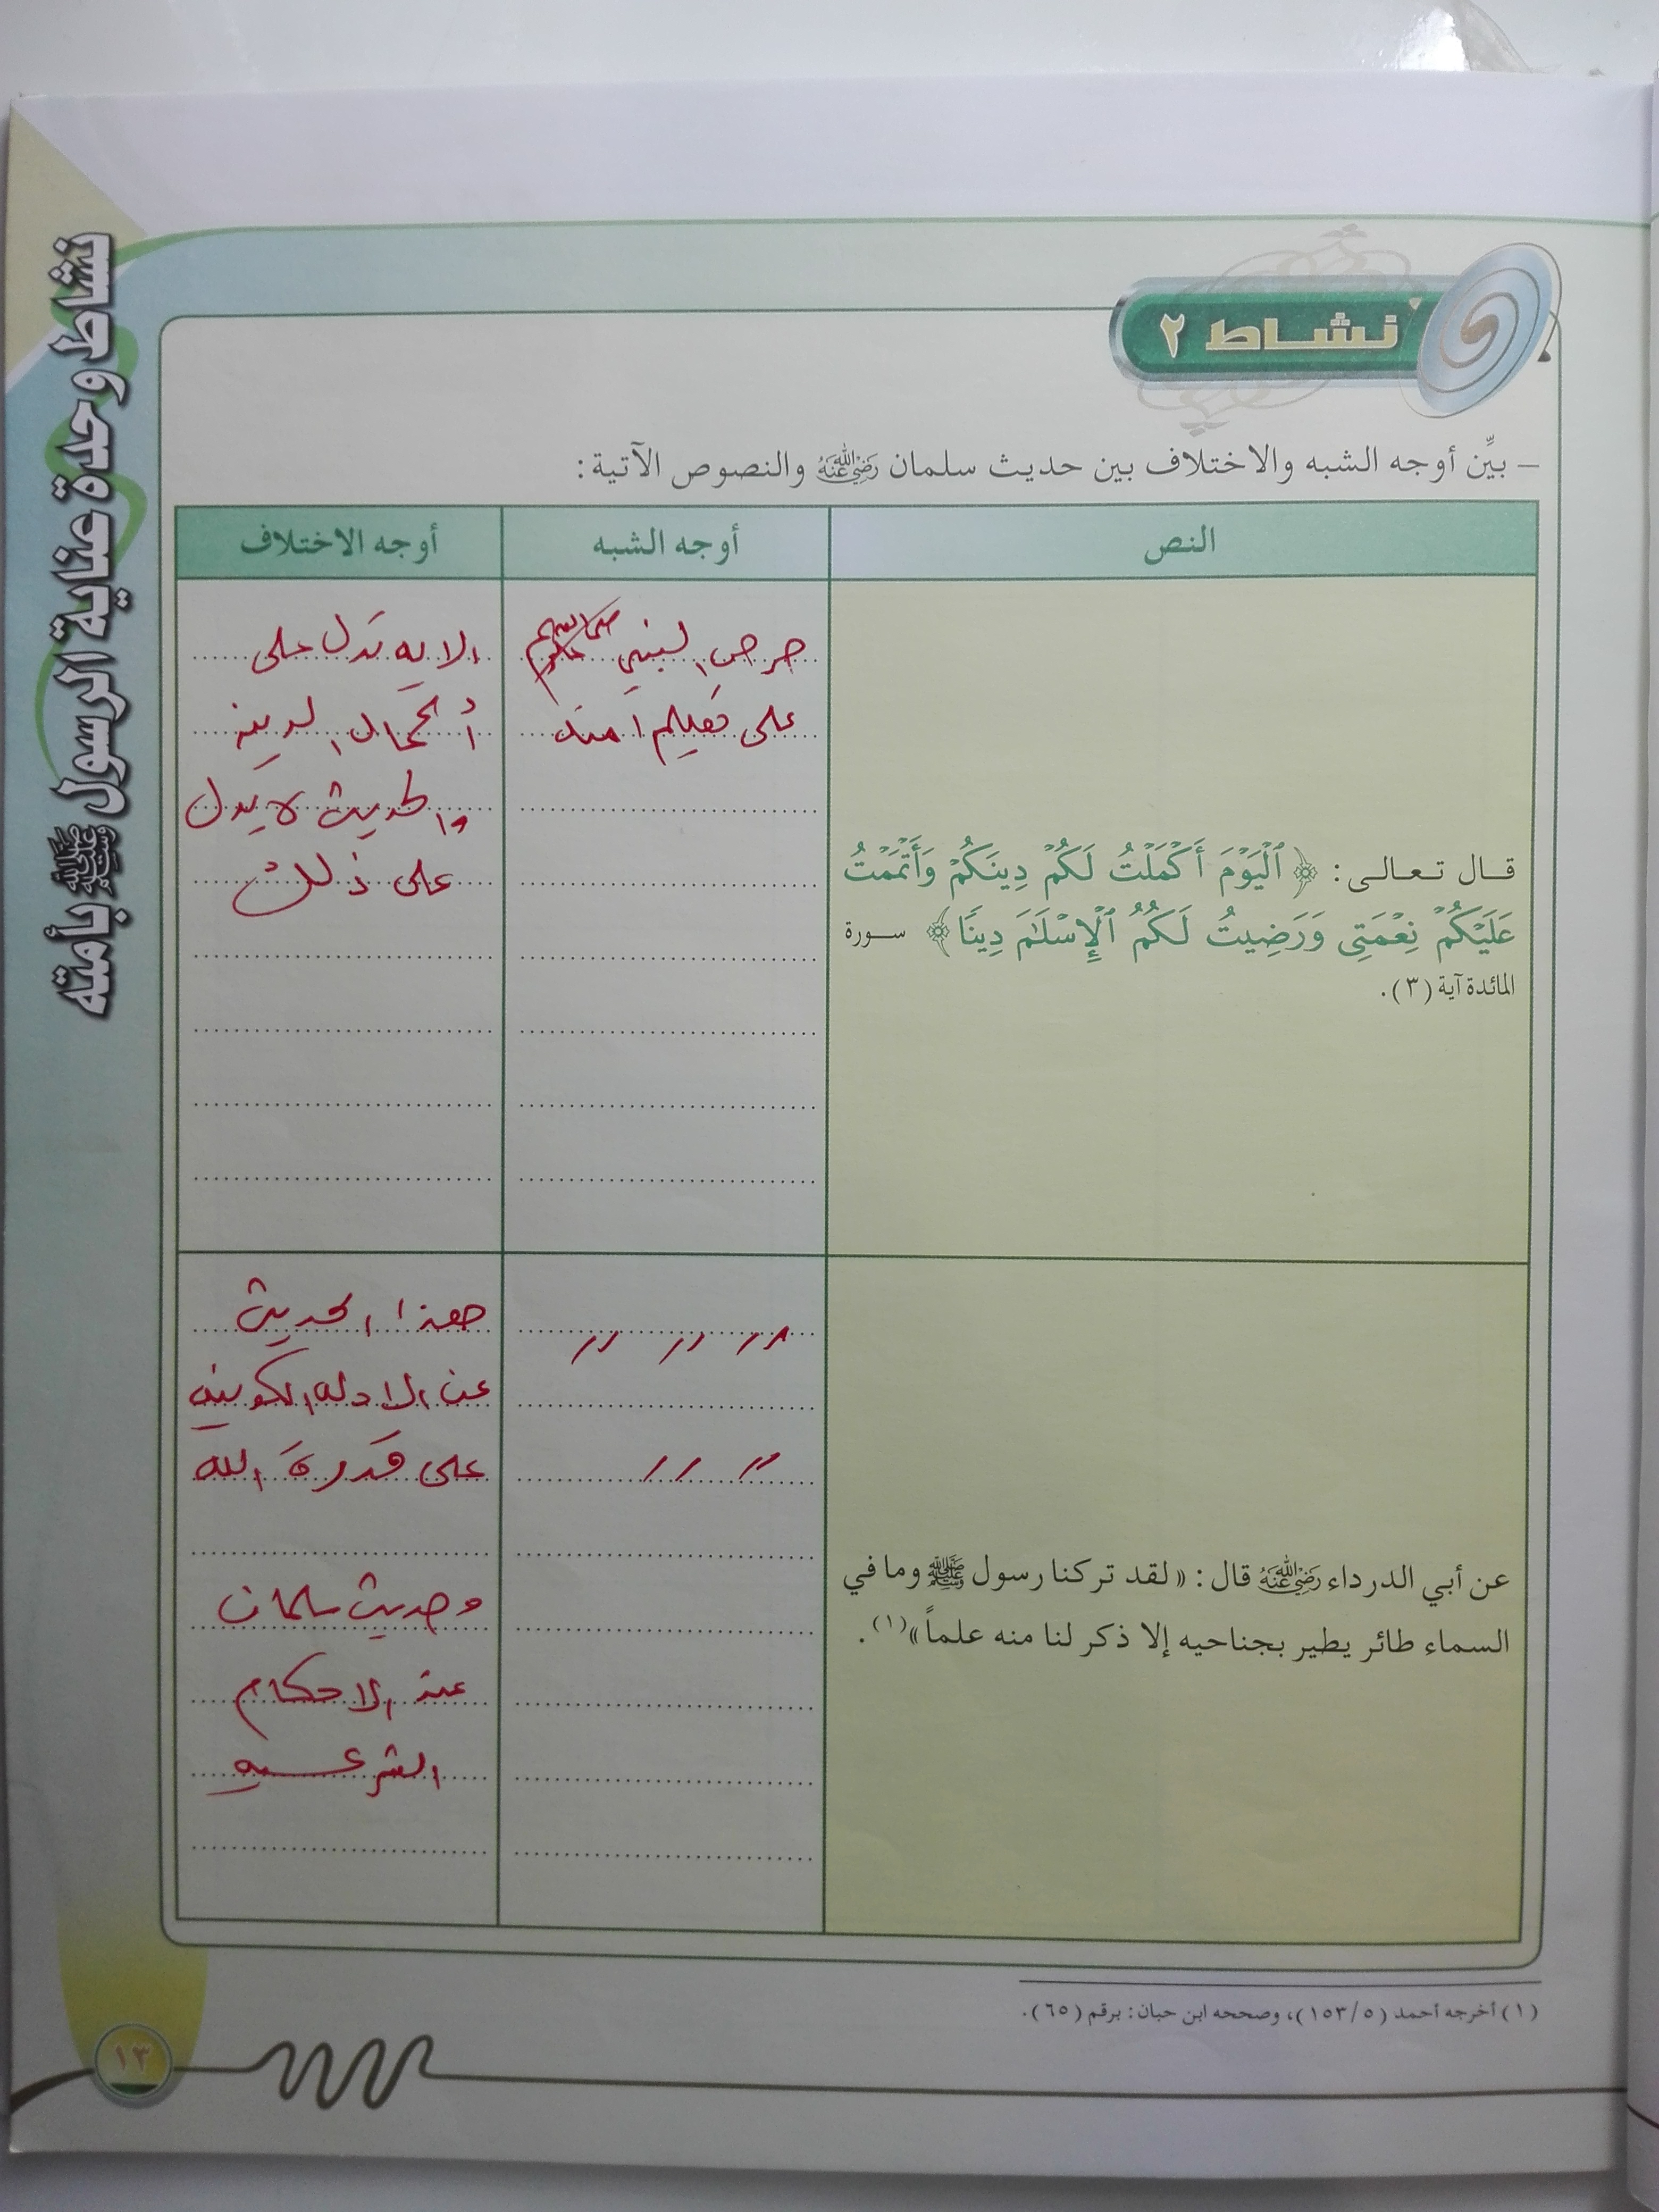 نشاط ٢
– بيِّن أوجه الشبه والاختلاف بين حديث سلمان رضي الله عنه والنصوص الآتية:
النص
أوجه الشبه
أوجه الاختلاف
قال تعالى: ﴿ ٱلْيَوْمَ أَكْمَلْتُ لَكُمْ دِينَكُمْ وَأَتْمَمْتُ
عَلَيْكُمْ نِعْمَتِى وَرَضِيتُ لَكُمُ ٱلْإِسْلَٰمَ دِينًا ﴾ سورة
المائدة آية (٣).
حرص النبي صلى الله عليه وسلم
على تعليم امته
الايه تدل على
أكمال الدين
والحديث لا يدل
على ذلك
عن أبي الدرداء رضي الله عنه قال: «لقد تركنا رسول ﷺ وما في
السماء طائر يطير بجناحيه إلا ذكر لنا منه علماً»(١).
// // //
// //
هذا الحديث
عن الادله الكونيه
على قدرة الله
وحديث سلمان
عن الاحكام
الشرعيه
(١) أخرجه أحمد (١٥٣/٥)، وصححه ابن حبان: برقم (٦٥).
نشاط وحدة عناية الرسول ﷺ بأمته
١٣